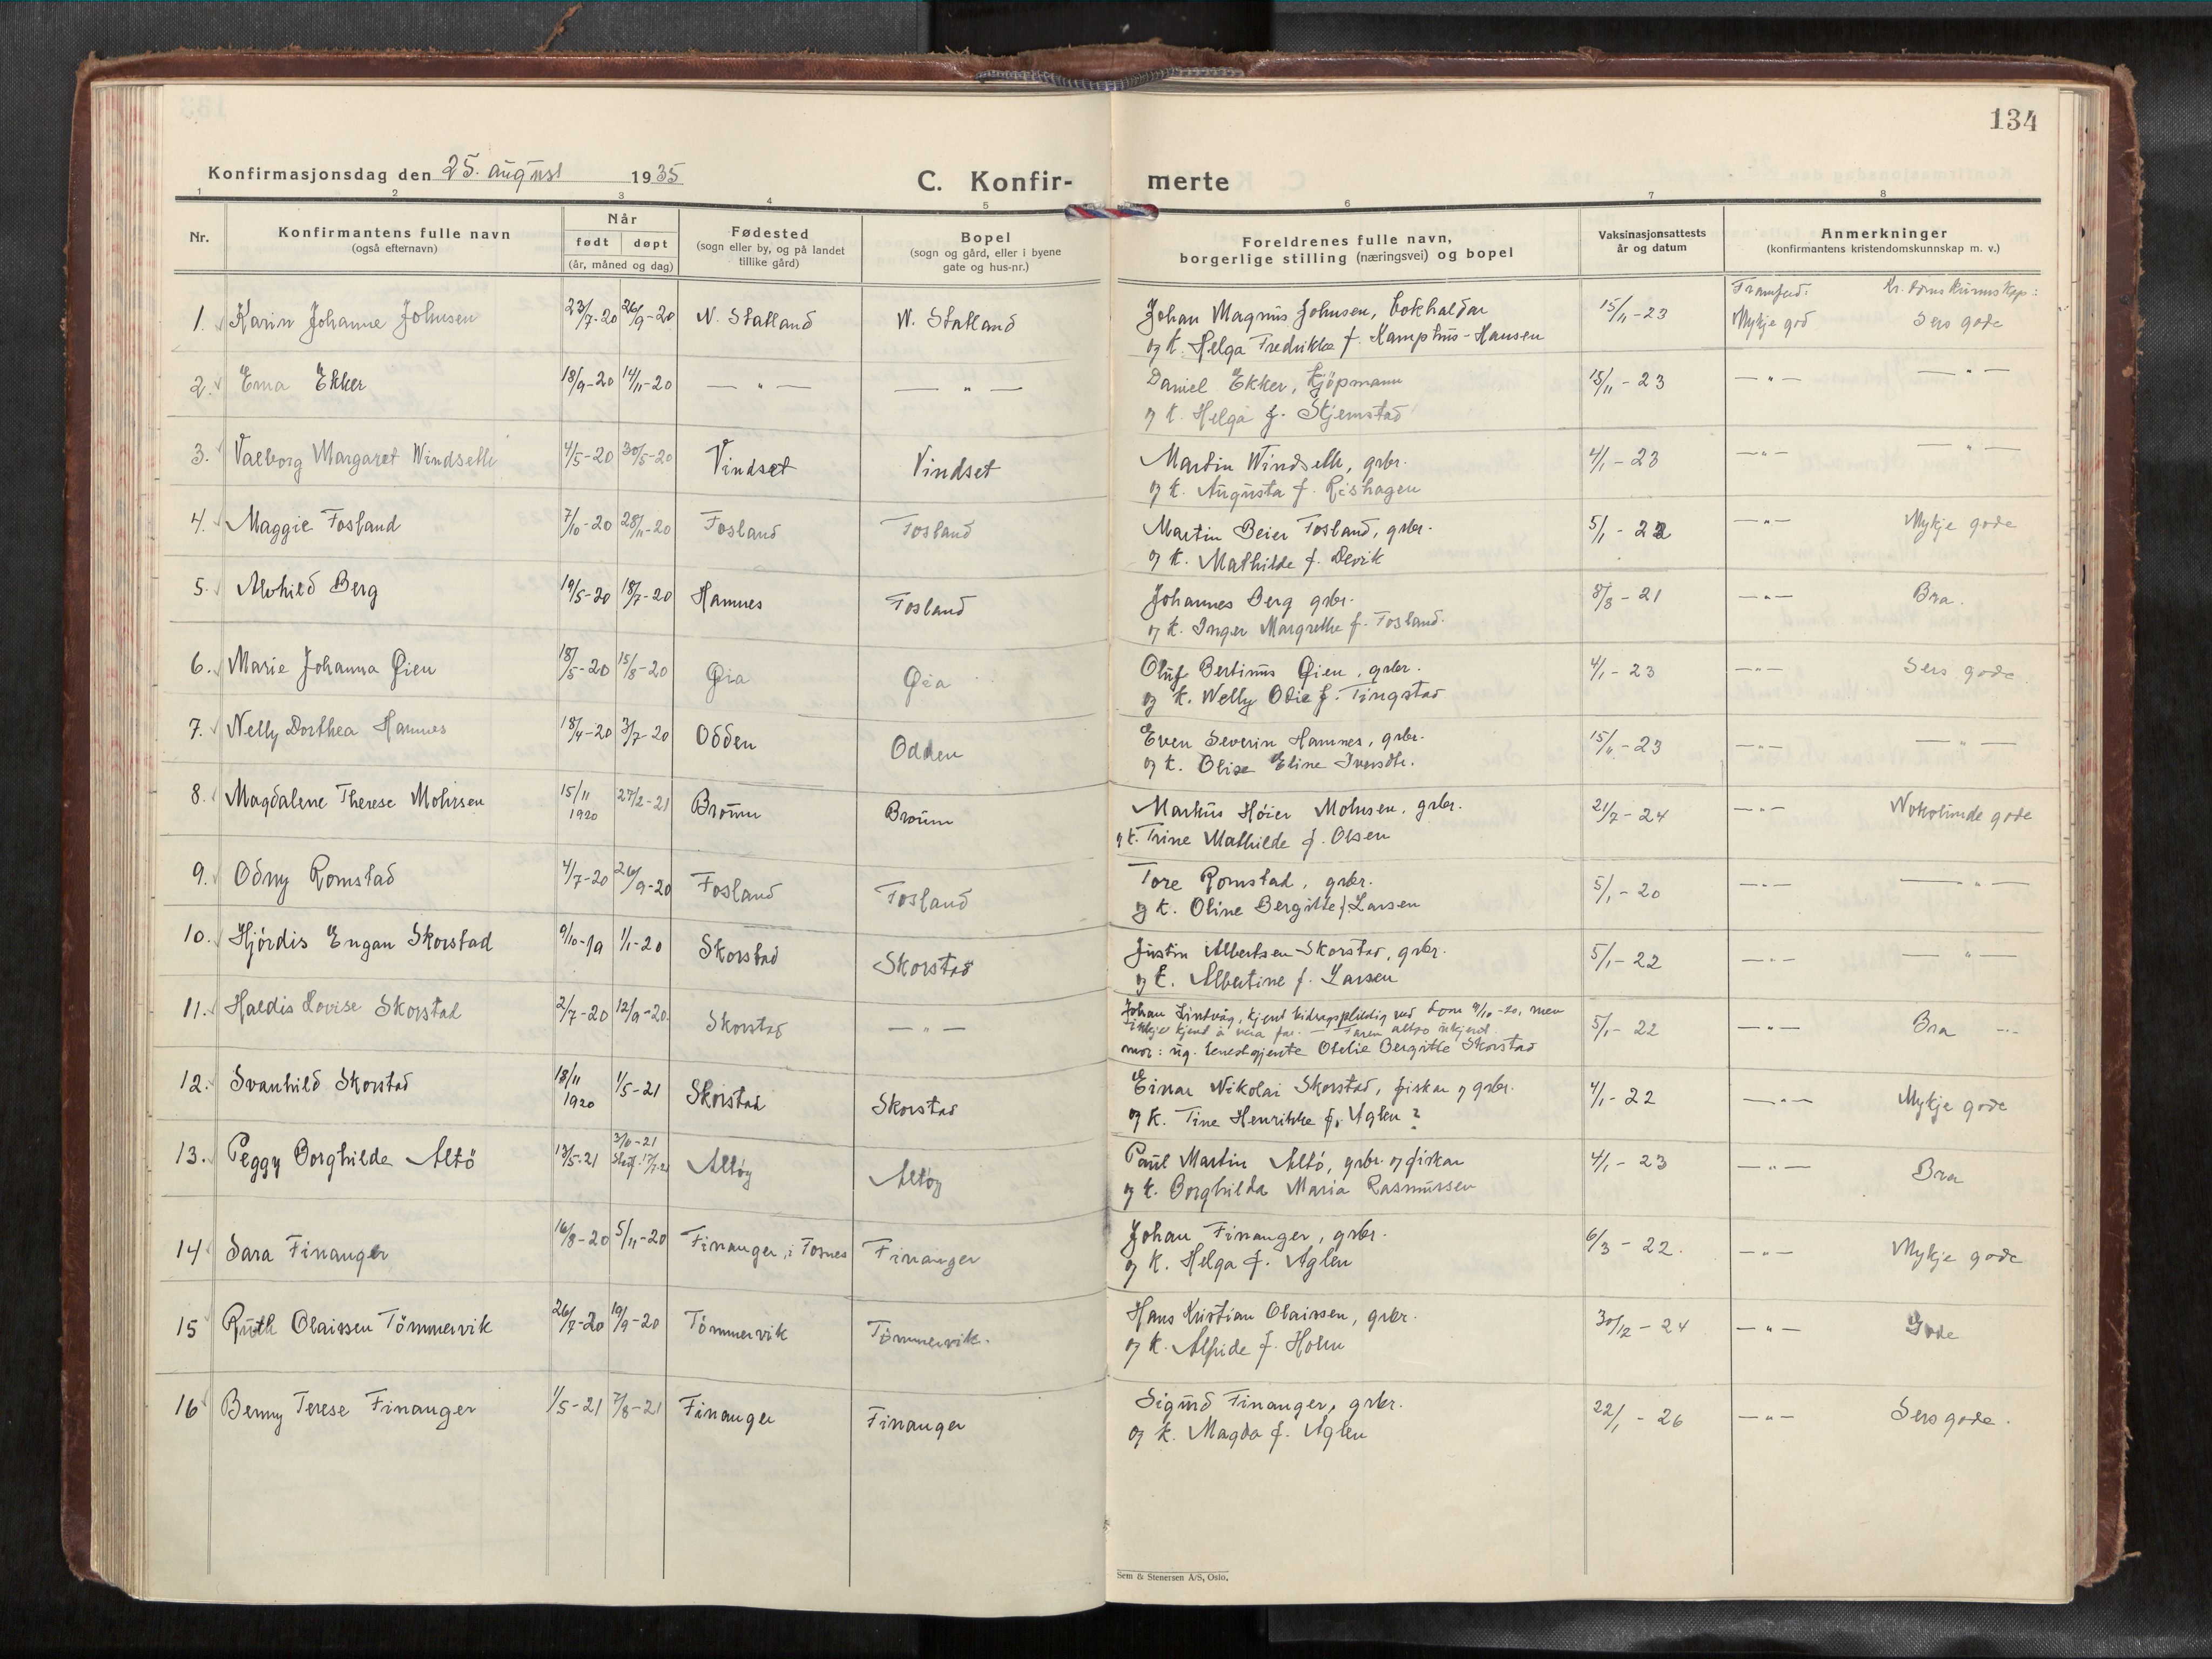 134
Konfirmasjonsdag den 25. august 1935
C. Konfir- merte
1 2 3 4 5 6 7 8
Nr.
Konfirmantens fulle navn
(også efternavn)
Når
født døpt
(år, måned og dag)
Fødested
(sogn eller by, og på landet
tillike gård)
Bopel
(sogn og gård, eller i byene
gate og hus-nr.)
Foreldrenes fulle navn,
borgerlige stilling (næringsvei) og bopel
Vaksinasjonsattests
år og datum
Anmerkninger
(konfirmantens kristendomskunnskap m. v.)
Framferd: Kr.domskunnskap:
1. Karin Johanne Johnsen 23/7-20 26/9-20 N. Statland N. Statland Johan Magnus Johnsen, bokhaldar 15/11-23 Mykje god Sers gode
og k. Helga Fredrikke f. Kamphus-Hansen
2. Erna Ekker 18/9-20 14/11-20 —"— —"— Daniel Ekker, kjöpmann 15/11-23 —"— —"—
og k. Helga f. Stjernstad
3. Valborg Margaret Windseth 4/5-20 30/5-20 Vindset Vindset Martin Windseth, grbr. 4/1-23 —"— —"—
og k. Augusta f. Rishagen
4. Maggie Fosland 7/10-20 28/11-20 Fosland Fosland Martin Beier Fosland, grbr. 5/1-22 —"— Mykje gode
og k. Mathilde f. Devik
5. Alvhild Berg 19/5-20 18/7-20 Hamnes Fosland Johannes Berg grbr. 8/8-21 —"— Bra.
og k. Inger Margrethe f. Fosland.
6. Marie Johanna Øien 18/5-20 15/8-20 Øia Øia Oluf Bertinus Øien, grbr. 4/1-23 —"— Sers gode.
og k. Nelly Odie f. Tingstad
7. Nelly Dorthea Hamnes 18/4-20 3/7-20 Odden Odden Even Severin Hamnes, grbr. 15/11-23 —"— —"—
og k. Olise Eline Iversdtr.
8. Magdalene Therese Mohnsen 15/11 1920 27/2-21 Brönn Brönn Markus Höier Mohnsen, grbr. 21/7-24 —"— Nokolunde gode
og k. Trine Mathilde f. Olsen
9. Odny Romstad 4/7-20 26/9-20 Fosland Fosland Tore Romstad, grbr. 5/1-20 —"— —"—
og k. Oline Bergitte f. Larsen
10. Hjördis Engan Skorstad 9/10-19 1/1-20 Skorstad Skorstad Justin Albertsen Skorstad, grbr. 5/1-22 —"— —"—
og k. Albertine f. Larsen
11. Haldis Lovise Skorstad 2/7-20 12/9-20 Skorstad —"— Johan Lindvåg, kjent bidragspliktig ved dom 9/10-20, men 5/1-22 —"— Bra —"—
ikkje kjend å vera far. — Faren altso ukjend.
mor: ug. Otelie Bergitte Skorstad
12. Svanhild Skorstad 18/11 1920 1/5-21 Skorstad Skorstad Einar Nikolai Skorstad, fiskar og grbr. 4/1-22 —"— Mykje gode
og k. Tine Henrikke f. Aglen?
13. Peggy Borghilde Altö 13/5-21 Altöy Altöy Paul Martin Altö, grbr. og fiskar 4/1-23 —"— Bra
og k. Borghilda Maria Rasmussen
14 Sara Finanger 16/8-20 5/11-20 Finanger, i Fosnes Finanger Johan Finanger, grbr. 6/3-22. —"— Mykje gode
og k. Helga f. Aglen
15 Ruth Olaissen Tömmervik 26/7-20 19/9-20 Tömmervik Tömmervik. Hans Kristian Olaissen, grbr. 30/12-24 —"— Gode
og k. Alfride f. Holm
16 Benny Terese Finanger 1/5-21 7/8-21 Finanger Finanger Sigurd Finanger, grbr. 22/1-26 —"— Sers gode.
og k. Magda f. Aglen
Sem & Stenersen A/S, Oslo.